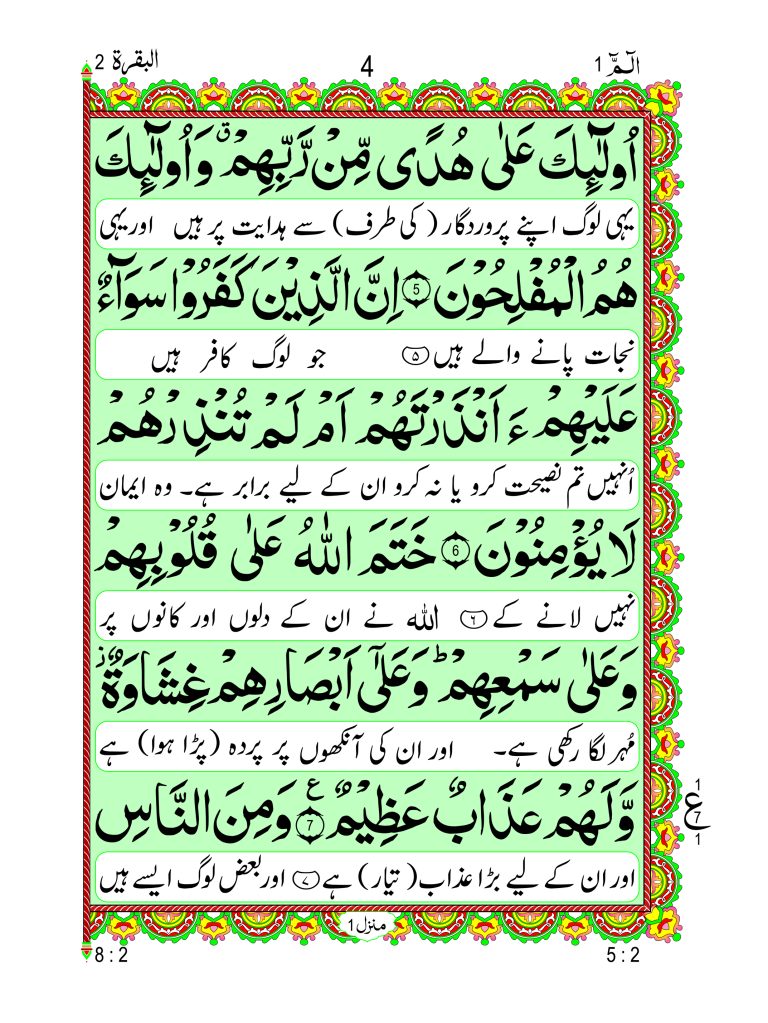 الٓمّٓ 1 4 البقرة 2
اُولٰٓئِكَ عَلٰى هُدًى مِّنْ رَّبِّهِمْ ۗ وَاُولٰٓئِكَ
یہی لوگ اپنے پروردگار ( کی طرف) سے ہدایت پر ہیں اور یہی
هُمُ الْمُفْلِحُوْنَ 5 اِنَّ الَّذِيْنَ كَفَرُوْا سَوَآءٌ
نجات پانے والے ہیں ۵ جو لوگ کافر ہیں
عَلَيْهِمْ ءَاَنْذَرْتَهُمْ اَمْ لَمْ تُنْذِرْهُمْ
اُنہیں تم نصیحت کرو یا نہ کرو ان کے لیے برابر ہے۔ وہ ایمان
لَا يُؤْمِنُوْنَ 6 خَتَمَ اللهُ عَلٰى قُلُوْبِهِمْ
نہیں لانے کے ۶ اللہ نے ان کے دلوں اور کانوں پر
وَعَلٰى سَمْعِهِمْ ؕ وَعَلٰٓى اَبْصَارِهِمْ غِشَاوَةٌ ز
مُہر لگا رکھی ہے۔ اور ان کی آنکھوں پر پردہ (پڑا ہوا) ہے
وَّلَهُمْ عَذَابٌ عَظِيْمٌ 7 ع وَمِنَ النَّاسِ
1
ع
7
1
اور ان کے لیے بڑا عذاب( تیار) ہے ۷ اور بعض لوگ ایسے ہیں
منزل 1
5 : 2 8 : 2